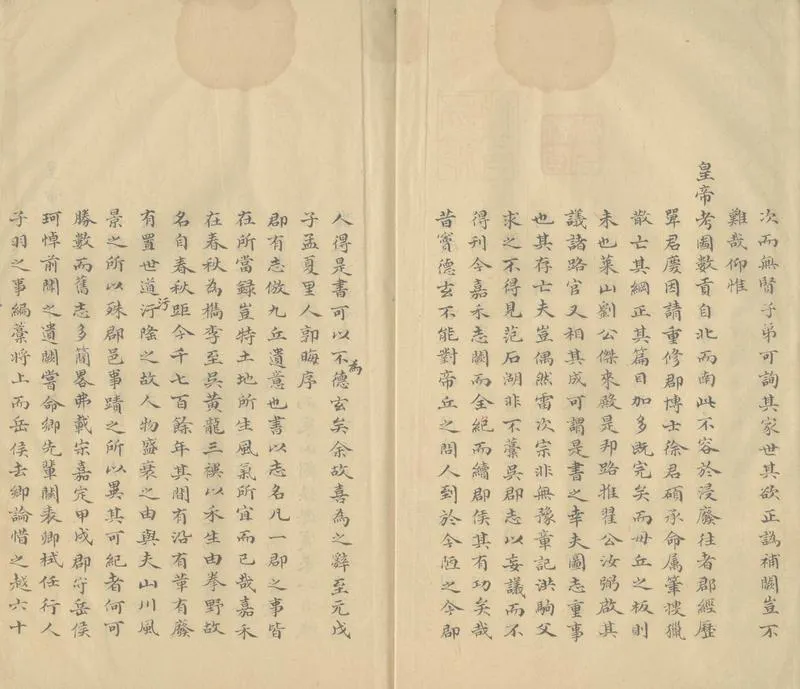 次而無賢子弟可詢其家世其欲正譌補闕豈不
難哉仰惟
皇帝考圖數貢自北而南此不容於浸廢往者郡經歷
單君慶因請重修郡博士徐君碩承命属筆搜獵
散亡其綱正其篇目加多既完矣而毋丘之板則
未也萊山劉公傑來殿是邦路推翟公汝弼啟其
議諸路官又相其成可謂是書之幸夫圖志重事
也其存亡夫豈偶然雷次宗非無豫章記洪駒父
求之不得見范石湖非不藁吳郡志以妄議而不
得刊今嘉禾志闕而全絕而續郡侯其有功矣哉
昔竇德玄不能對帝丘之問人到於今陋之今郡
人得是書可以不為德玄矣余故喜為之辭至元戊
子孟夏里人郭晦序
郡有志倣九丘遺意也書以志名凡一郡之事皆
在所當録豈特土地所生風氣所宜而已哉嘉禾
在春秋為檇李至吳黃龍三禩以禾生由拳野故
名自春秋距今千七百餘年其間有沿有革有廢
有置世道汙隆之故人物盛衰之由與夫山川風
污
景之所以殊郡邑事蹟之所以異其可紀者何可
勝數而舊志多簡畧弗載宋嘉定甲戌郡守岳侯
珂悼前聞之遺闕嘗命鄉先輩關表卿栻任行人
子羽之事編藁將上而岳侯去鄉論惜之越六十